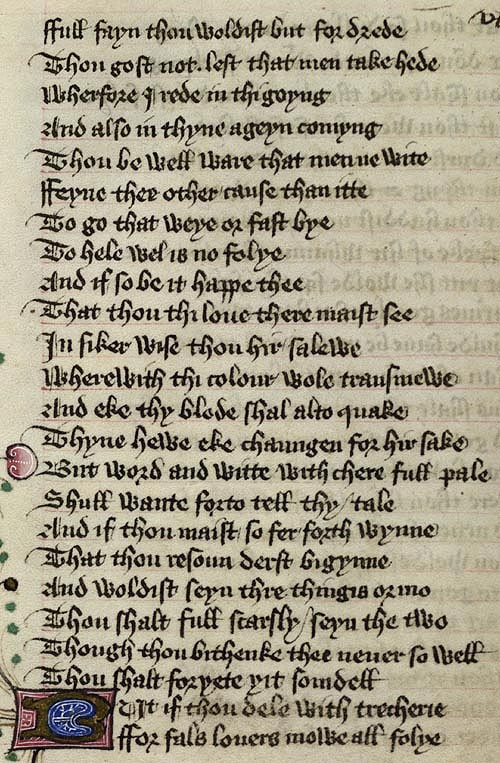 ffull fayn thou woldist but for drede
Thou gost not. lest that men take hede
Wherfore I rede in thi goyng
And also in thyne ageyn comyng
Thou be well ware that men ne wite
Ffeyne thee other cause than itte
To go that weye or fast bye
To hele wel is no folye
And if so be it happe thee
That thou thi loue there maist see
In siker wise thou hir salewe
Wherewith thi colour wole transmewe
And eke thy blode shal alto quake
Thyne hewe eke chaungen for hir sake
But word and witte with chere full pale
Shull wante forto tell thy tale
And if thou maist so fer forth wynne
That thou resoun derst bigynne
And woldist seyn thre thingis or mo
Thou shalt full scarsly seyn the two
Though thou bithenke thee neuer so well
Thou shalt foryete yit somdell
But if thou dele with trecherie
Ffor fals louers mowe all folye